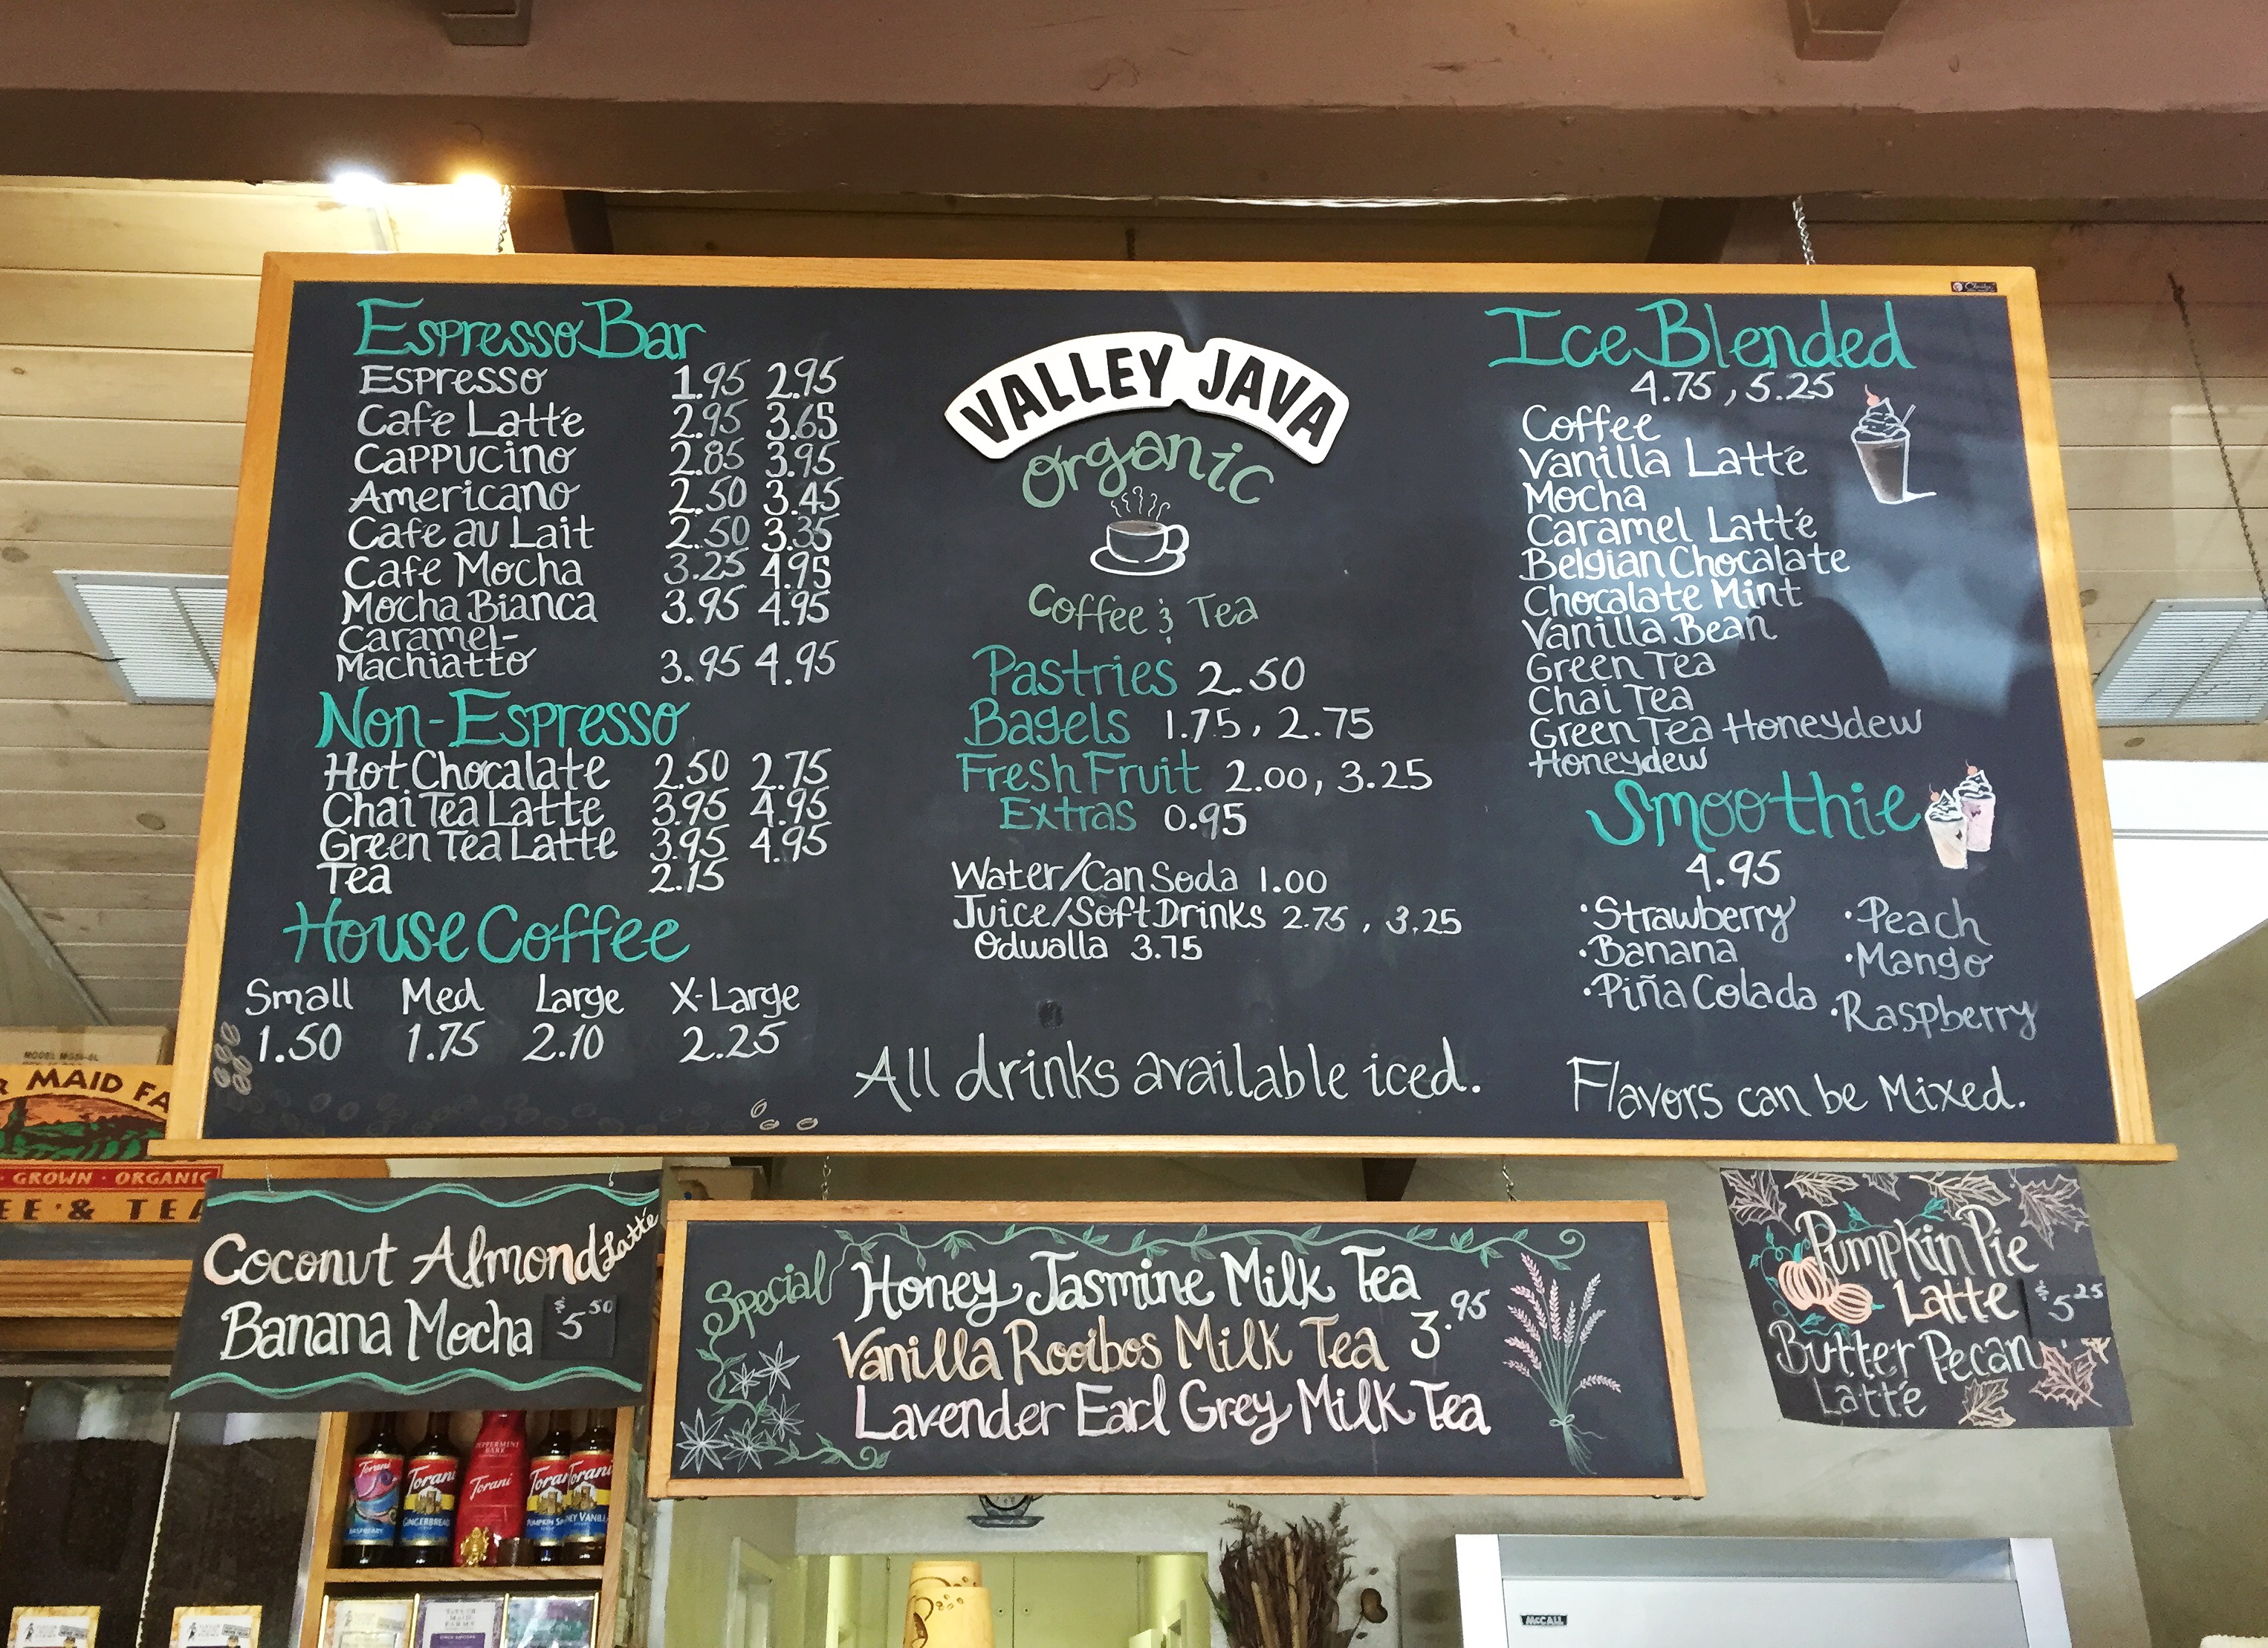 Espresso Bar
Espresso 1.95 2.95
Café Latté 2.95 3.65
Cappucino 2.85 3.95
Americano 2.50 3.45
Café au Lait 2.50 3.35
Café Mocha 3.25 4.95
Mocha Bianca 3.95 4.95
Caramel-
Machiatto 3.95 4.95
Non-Espresso
Hot Chocalate 2.50 2.75
Chai Tea Latte 3.95 4.95
Green Tea Latte 3.95 4.95
Tea 2.15
House Coffee
Small Med Large X-Large
1.50 1.75 2.10 2.25
VALLEY JAVA
organic
Coffee & Tea
Pastries 2.50
Bagels 1.75, 2.75
Fresh Fruit 2.00, 3.25
Extras 0.95
Water/Can Soda 1.00
Juice/Soft Drinks 2.75, 3.25
Odwalla 3.75
All drinks available iced.
Ice Blended
4.75, 5.25
Coffee
Vanilla Latté
Mocha
Caramel Latté
Belgian Chocalate
Chocalate Mint
Vanilla Bean
Green Tea
Chai Tea
Green Tea Honeydew
Honeydew
Smoothie
4.95
·Strawberry ·Peach
·Banana ·Mango
·Piña Colada ·Raspberry
Flavors can be Mixed.
MAID FA
GROWN · ORGANIC
EE · & TEA
Coconut Almond Latté
Banana Mocha $5.50
Special
Honey Jasmine Milk Tea
Vanilla Rooibos Milk Tea 3.95
Lavender Earl Grey Milk Tea
Pumpkin Pie
Latte $5.25
Butter Pecan
Latté
Torani
Torani
GINGERBREAD
PEPPERMINT
BARK
Torani
Torani
Torani
McCALL